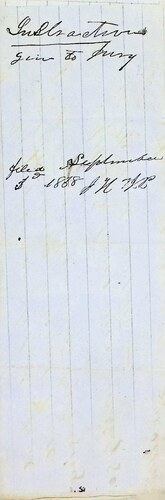 Instructions
given to Jury
filed September
3d 1858 J H